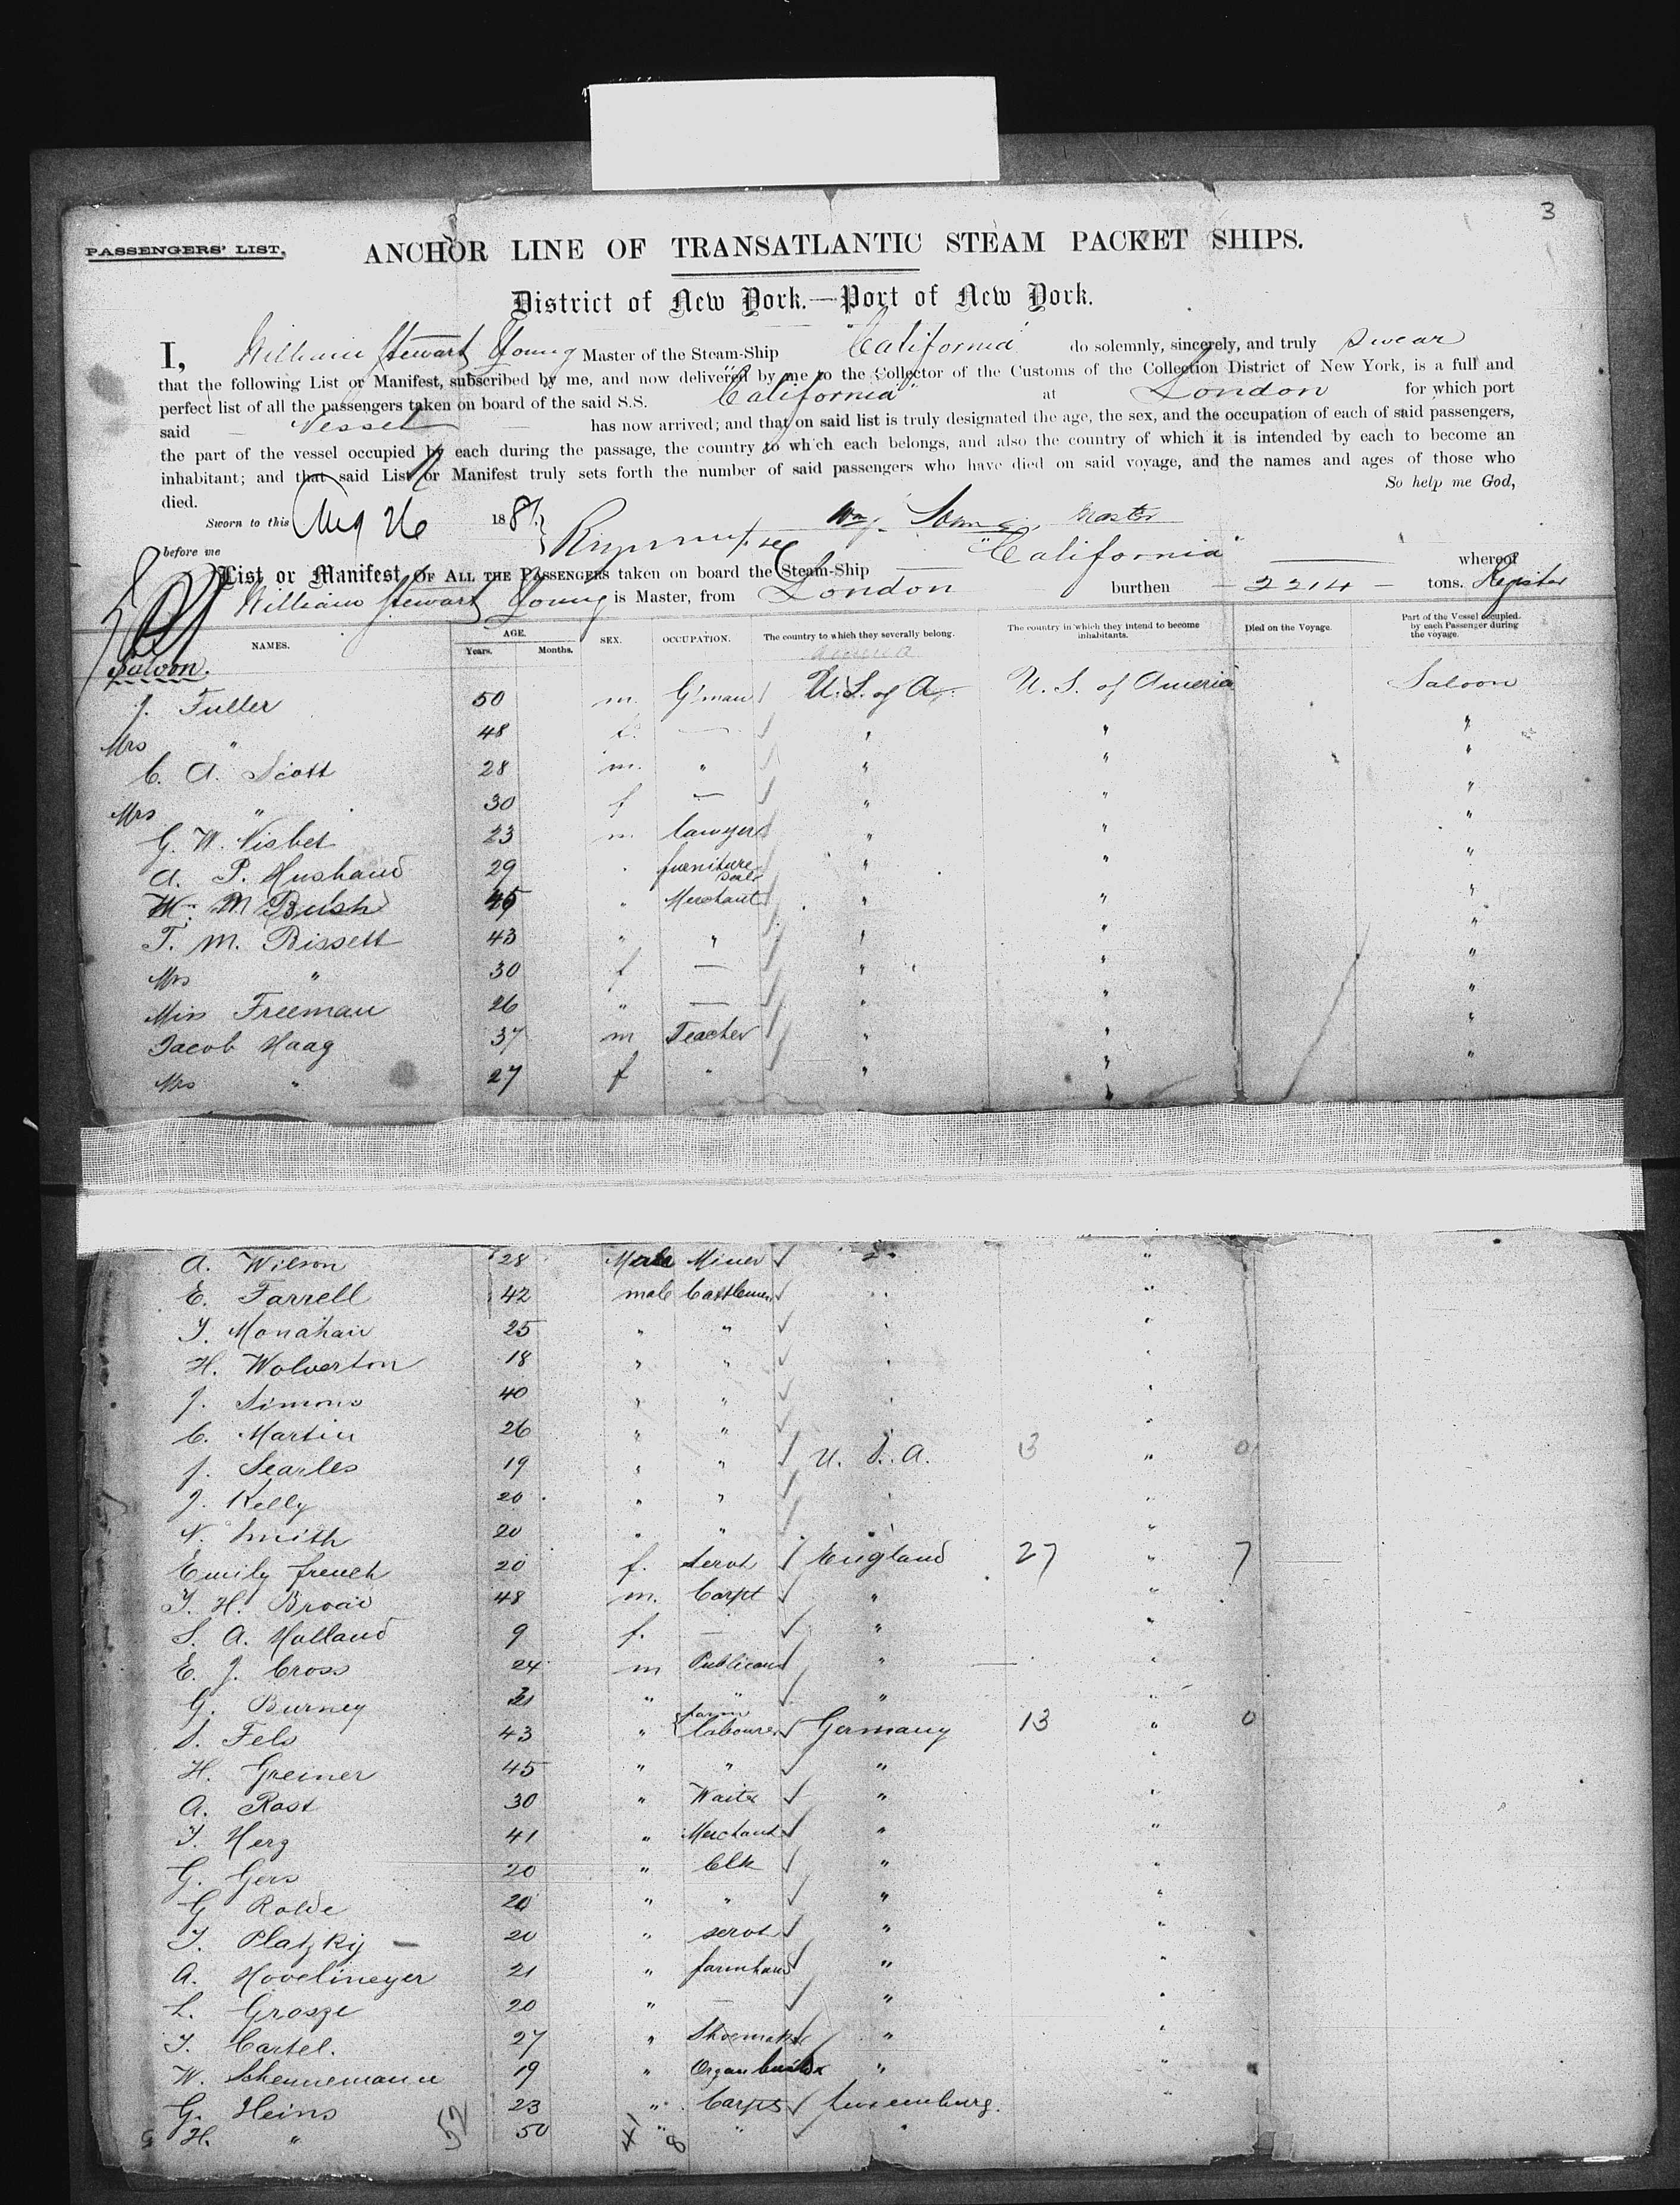 3
PASSENGERS' LIST. ANCHOR LINE OF TRANSATLANTIC STEAM PACKET SHIPS.
District of New York.—Port of New York.
I, William Stewart Young Master of the Steam-Ship "California" do solemnly, sincerely, and truly swear
that the following List or Manifest, subscribed by me, and now delivered by me to the Collector of the Customs of the Collection District of New York, is a full and
perfect list of all the passengers taken on board of the said S.S. "California" at London for which port
said Vessel has now arrived; and that on said list is truly designated the age, the sex, and the occupation of each of said passengers,
the part of the vessel occupied by each during the passage, the country to which each belongs, and also the country of which it is intended by each to become an
inhabitant; and that said List or Manifest truly sets forth the number of said passengers who have died on said voyage, and the names and ages of those who
died. So help me God,
Sworn to this Aug 26 1881. Wm. S. Young, Master
before me
List or Manifest OF ALL THE PASSENGERS taken on board the Steam-Ship "California" whereof
William Stewart Young is Master, from London burthen — 2214 — tons. Register
NAMES. AGE. Years. Months. SEX. OCCUPATION. The country to which they severally belong. The country in which they intend to become inhabitants. Died on the Voyage. Part of the Vessel occupied by each Passenger during the voyage.
Saloon.
J. Fuller 50 m. G'man U.S. of A. U.S. of America Saloon
Mrs " 48 f. — " " "
C. A. Scott 28 m. " " " "
Mrs " 30 f — " " "
G. W. Nisbet 23 m. Lawyer " " "
A. P. Husband 29 " furniture Dealr " " "
W. M Bush 45 " Merchant " " "
T. M. Bissett 43 " " " " "
Mrs " 30 f — " " "
Miss Freeman 26 " — " " "
Jacob Haag 37 m Teacher " " "
Mrs " 27 f " " " "
A. Wilson 28 Male Miner " "
E. Farrell 42 male Cattleman " "
T. Monahan 25 " " " "
H. Wolverton 18 " " " "
J. Simons 40 " " " "
C. Martin 26 " " "
J. Searles 19 " " U.S.A. 13 " 0
J. Kelly 20 " " " "
N. Smith 20 " " " "
Emily French 20 f. Servt England 27 " 7
T. H. Broad 48 m. Carpt " "
S. A. Holland 9 f. — " "
E. J. Cross 24 m Publican " "
G. Burney 21 " " " "
S. Fels 43 " farm labourer Germany 13 " 0
H. Greiner 45 " " " "
A. Rast 30 " Waiter " "
T. Herz 41 " Merchant " "
G. Gers 20 " Clk " "
G Rolde 20 " " " "
T. Platzky — 20 " servt " "
A. Hovelmeyer 21 " farmhand " "
L. Grosze 20 " — " "
T. Cartel. 27 " Shoemaker " "
W. Schennemann 19 " Organ builder " "
G. Heins 23 " Carpt Luxemburg. "
H. " 50 " " "
52 41 8